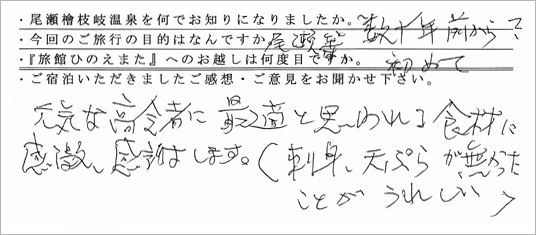 ・尾瀬檜枝岐温泉を何でお知りになりましたか。数十年前から
・今回のご旅行の目的はなんですか 尾瀬
・『旅館ひのえまた』へのお越しは何度目ですか。初めて
・ご宿泊いただきましたご感想・ご意見をお聞かせ下さい。
元気な高令者に最適と思われる食材に
感激、感謝します。(刺身、天ぷらが無かった
ことがうれしい)